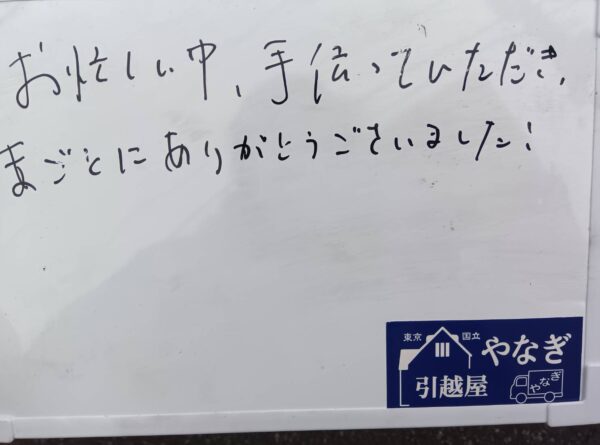 お忙しい中、手伝っていただき、
まごとにありがとうございました!
東京 国立
やなぎ
引越屋
やなぎ